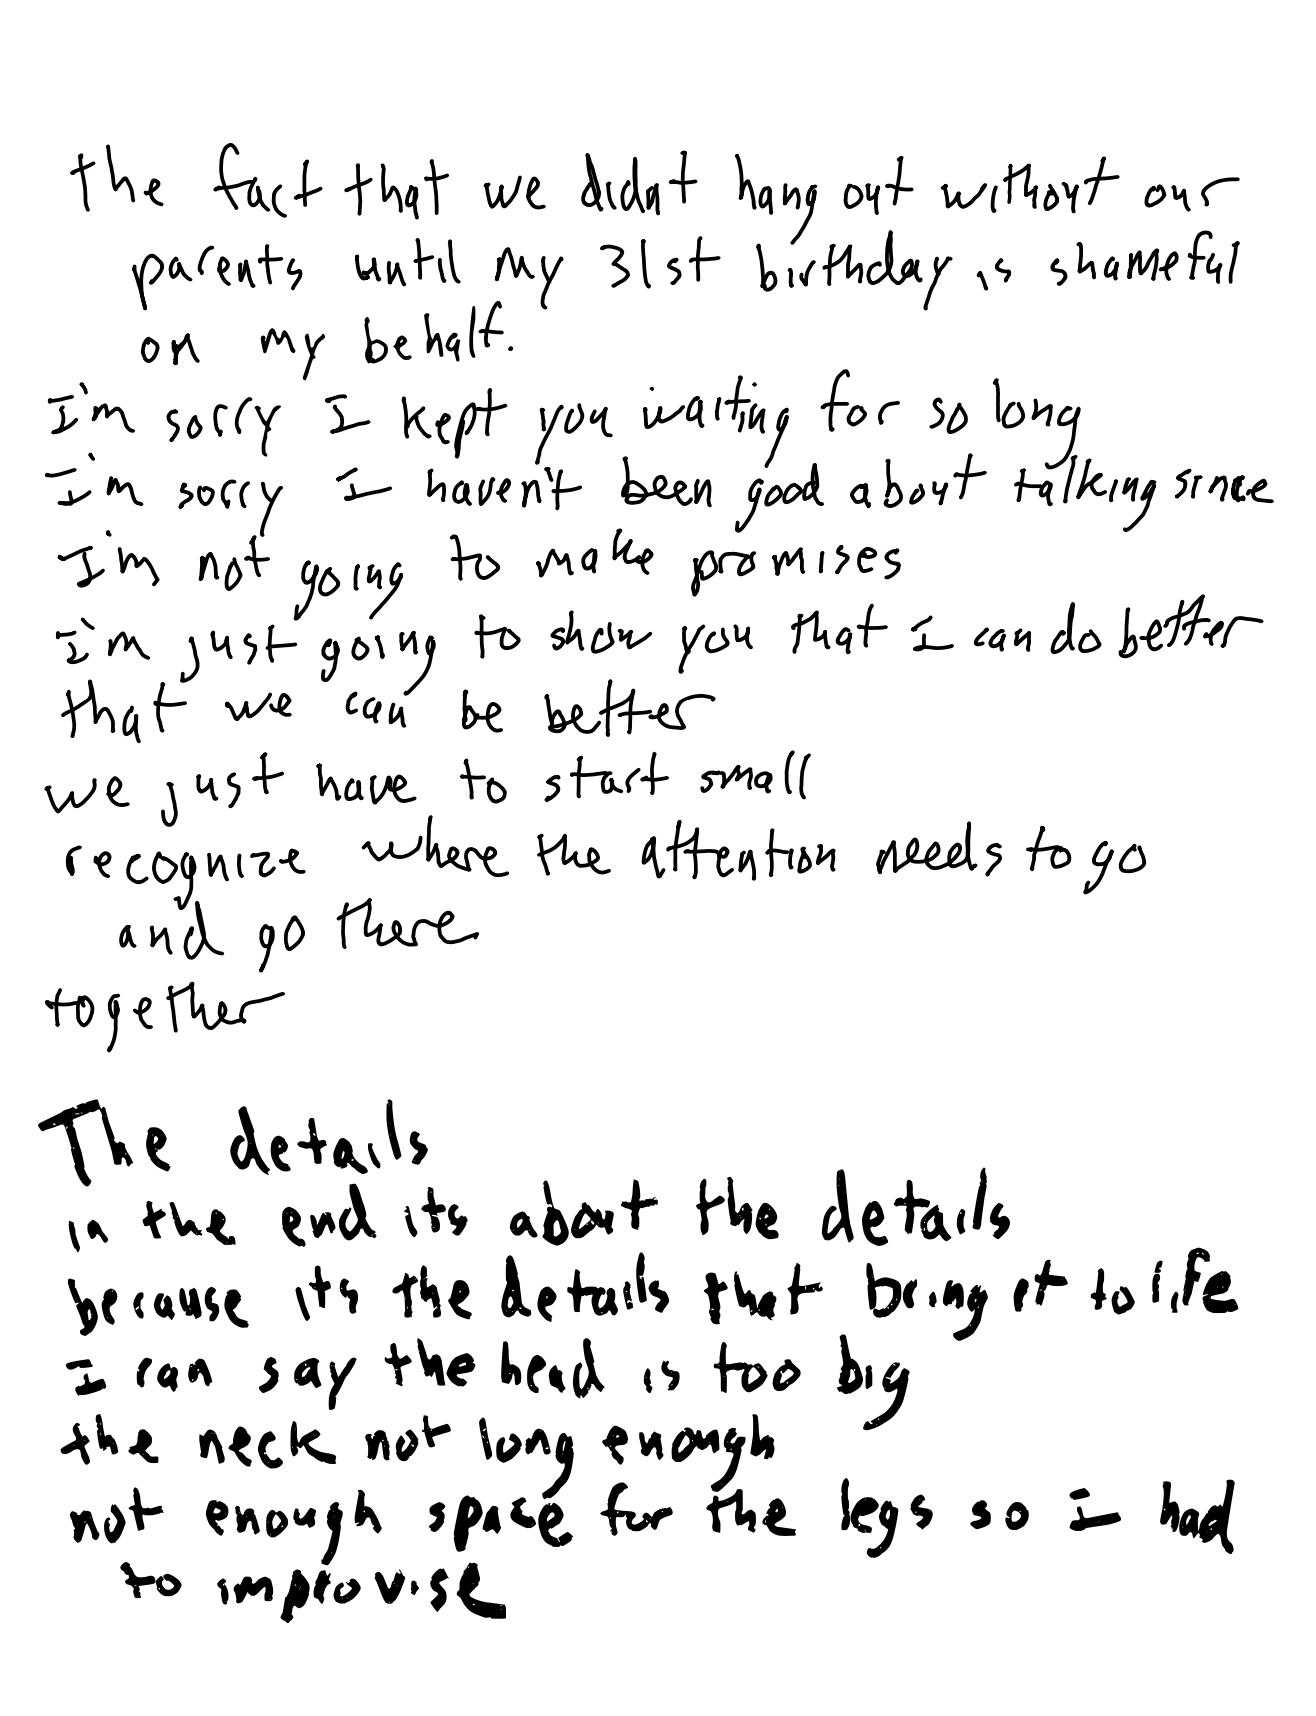 the fact that we didnt hang out without our
parents until my 31st birthday is shameful
on my behalf.
I'm sorry I kept you waiting for so long
I'm sorry I haven't been good about talking since
I'm not going to make promises
I'm just going to show you that I can do better
that we can be better
we just have to start small
recognize where the attention needs to go
and go there
together
The details
in the end its about the details
because it's the details that bring it to life
I can say the head is too big
the neck not long enough
not enough space for the legs so I had
to improvise